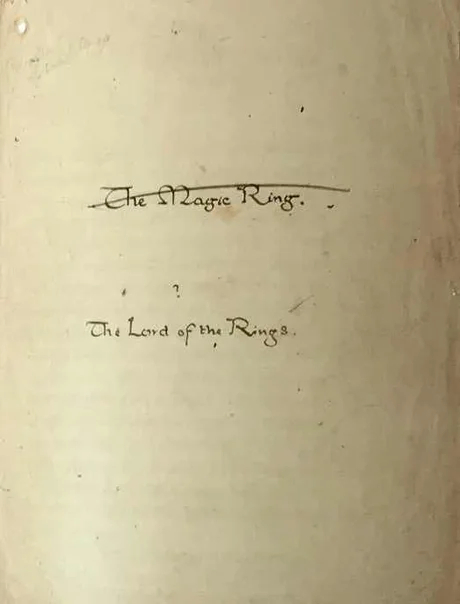 The Magic Ring.
?
The Lord of the Rings.